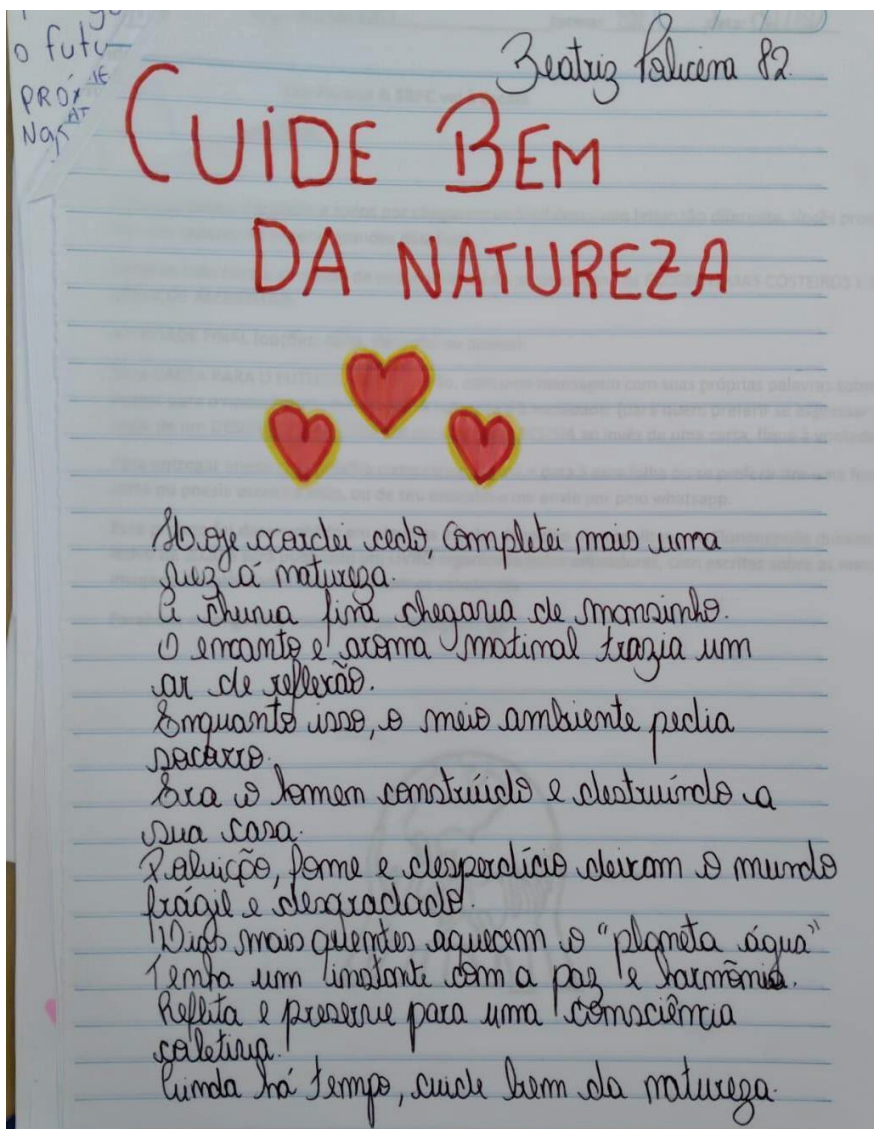 o futu
PRÓX
Nas
Beatriz Policena 82
CUIDE BEM
DA NATUREZA
Hoje acordei cedo, Completei mais uma
vez á natureza.
A chuva fina chegava de mansinho.
O encanto e aroma matinal trazia um
ar de reflexão.
Enquanto isso, o meio ambiente pedia
socorro.
Era o homem construído e destruíndo a
sua casa.
Poluição, fome e desperdício deixam o mundo
frágil e desgradado.
Dias mais quentes aquecem o "planeta água"
Tenha um instante com a paz e harmônia.
Reflita e preserve para uma consciência
coletiva.
Ainda há tempo, cuide bem da natureza.